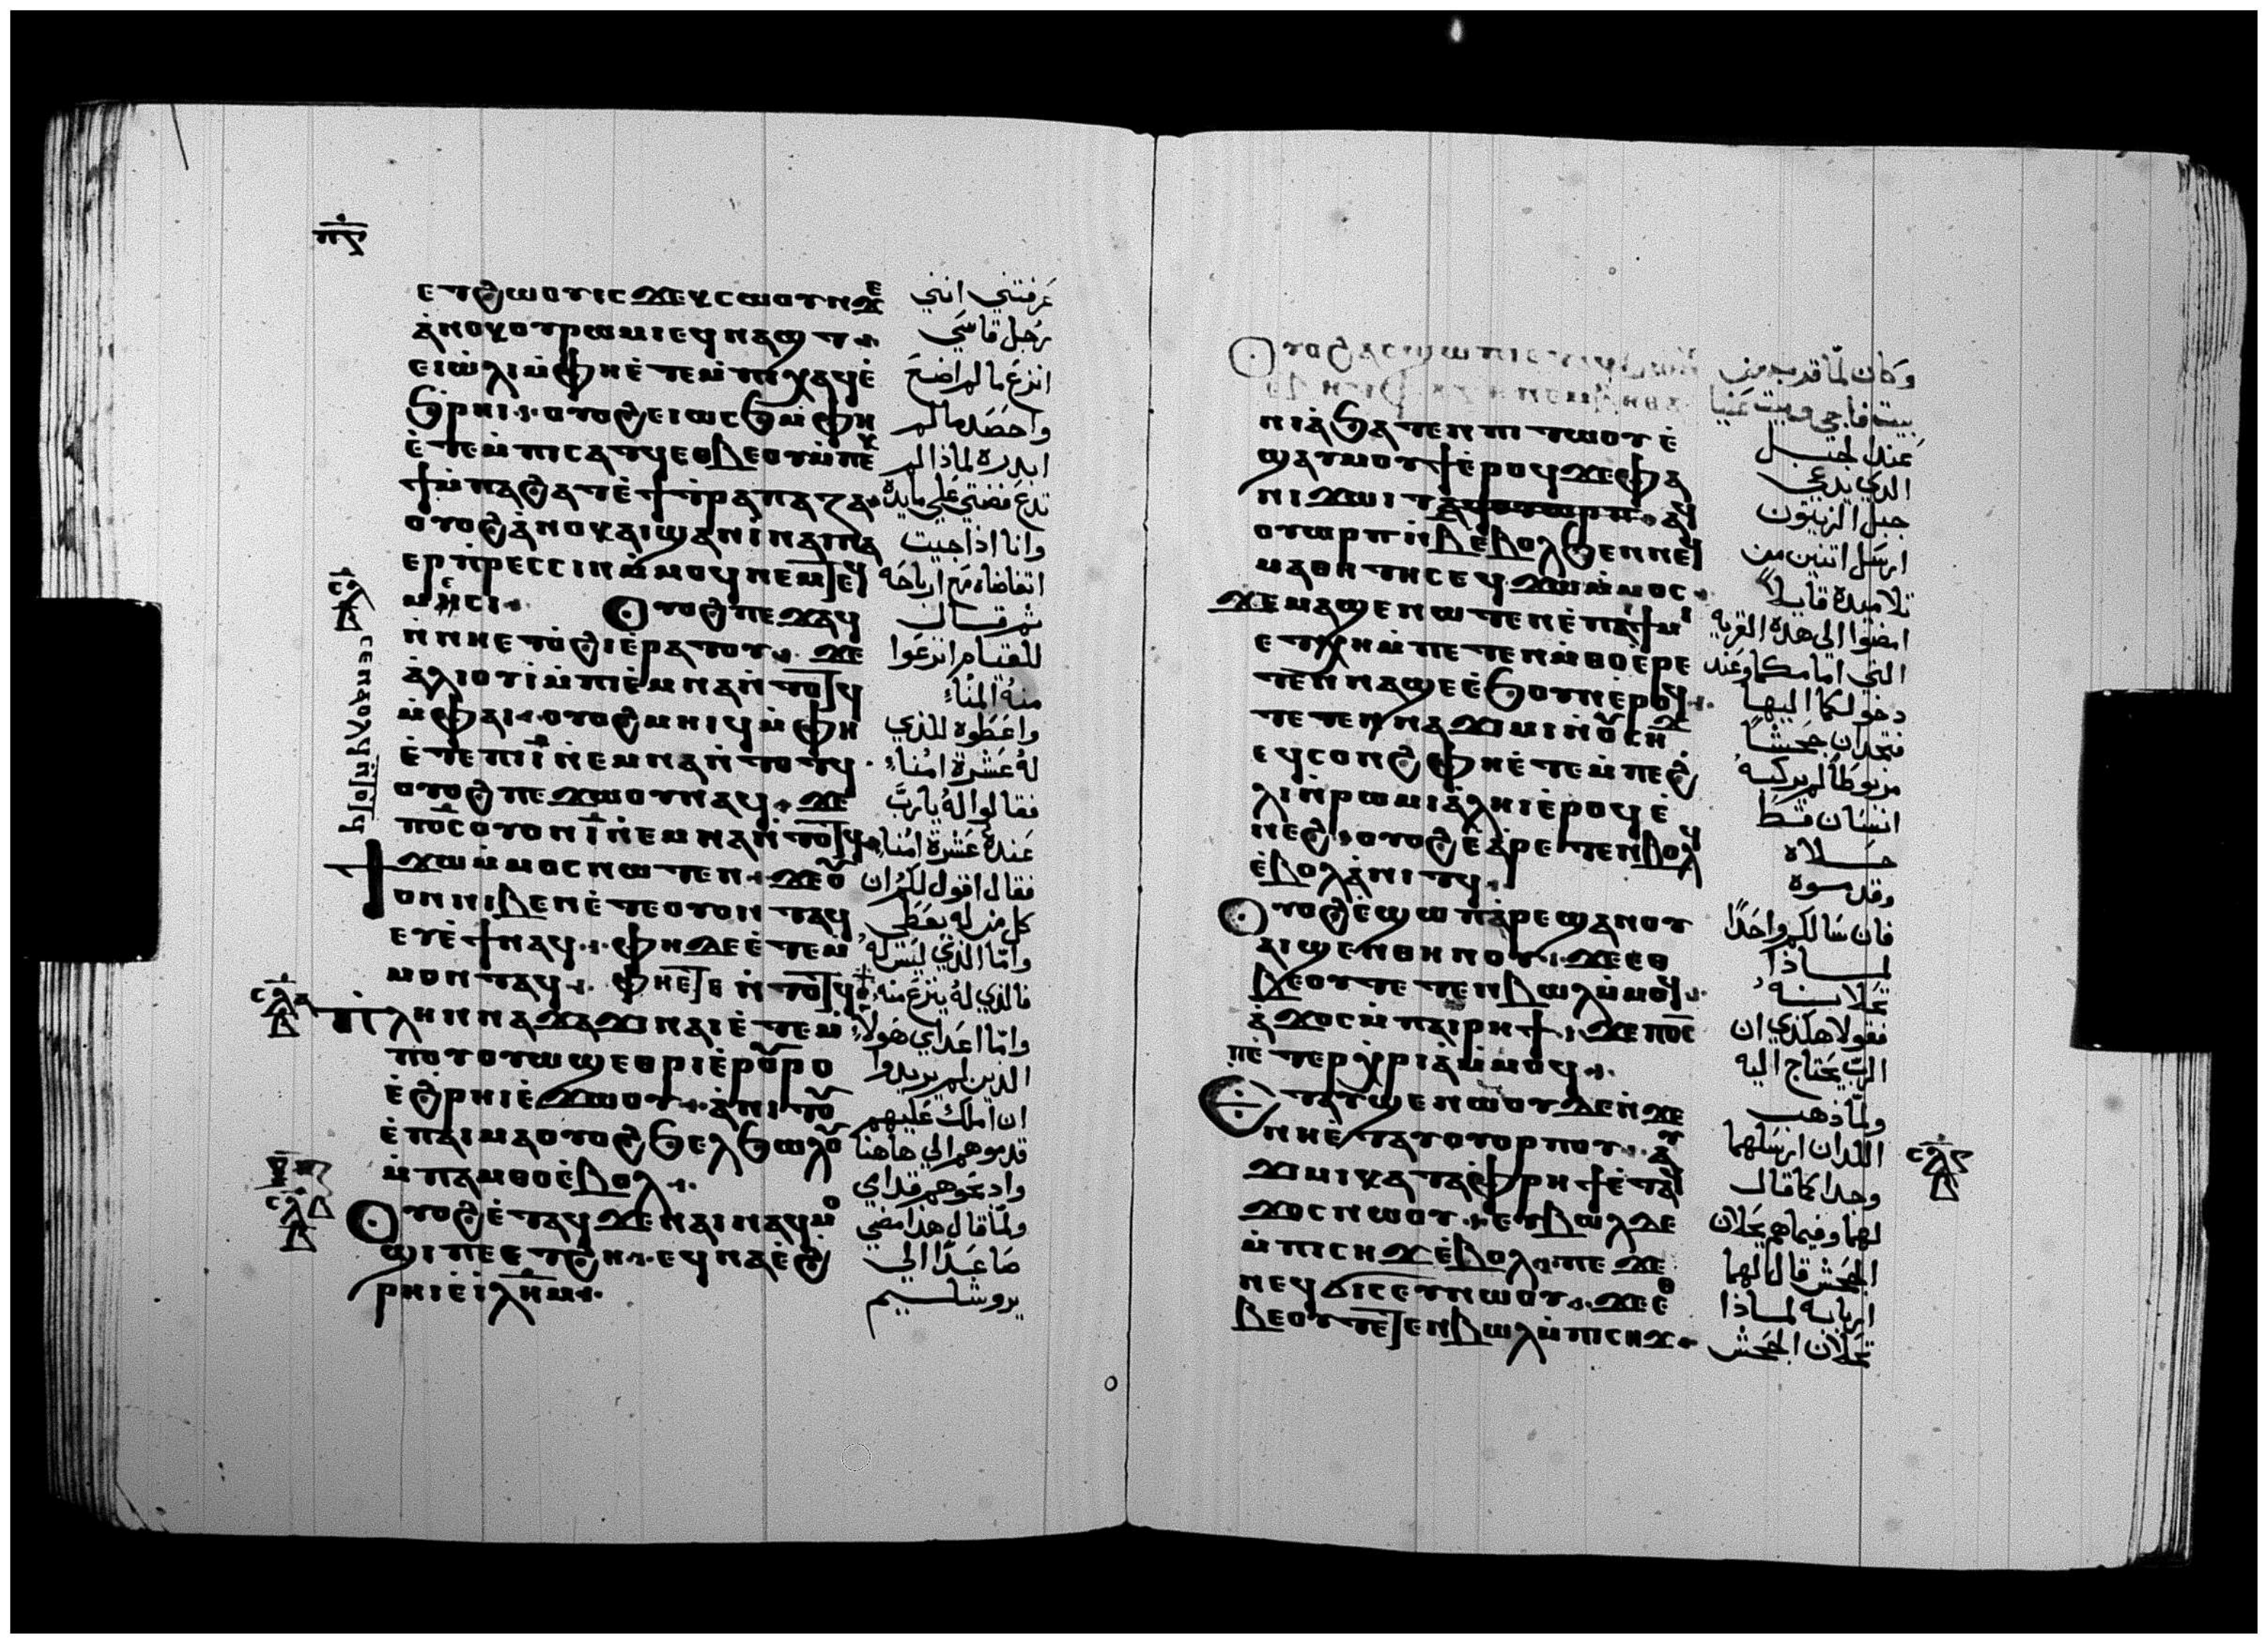 ⲡⲍ
ⲉⲧϩⲱⲟⲩ ⲓⲥϫⲉ ⲕⲥⲱⲟⲩⲛ ϫⲉ
ⲁⲛⲟⲕ ⲟⲩⲣⲱⲙⲓ ⲉϥⲛⲁϣⲧ
ⲉⲓⲱⲗⲓ ⲙ̀ⲫⲏ ⲉ̀ⲧⲉⲙⲡⲓⲭⲁϥ ⲉ̀
ϧⲣⲏⲓ ⲟⲩⲟϩ ⲉⲓⲱⲥϧ ⲙ̀ⲫⲏ
ⲉ̀ⲧⲉⲙⲡⲓⲥⲁⲧϥ ⲉⲟⲃⲉⲟⲩ ⲙ̀ⲡⲉⲕ
ϯ ⲙ̀ⲡⲁϩⲁⲧ ⲉ̀ϯⲧⲣⲁⲡⲁⲍⲁ
ⲟⲩⲟϩ ⲁ̀ⲛⲟⲕ ⲁⲓϣⲁⲛⲓ̀ ⲛⲁⲓⲛⲁ
ⲉⲣⲡ̀ⲣⲉⲥⲥⲓⲛ ⲙ̀ⲙⲟϥ ⲛⲉⲙ
ⲙⲏⲥⲓ ⲟⲩⲟϩ ⲡⲉϫⲁϥ
ⲛ̀ⲛⲏ ⲉⲧⲟ̀ϩⲓ ⲉ̀ⲣⲁⲧⲟⲩ ϫⲉ
ⲁ̀ⲗⲓⲟⲩⲓ̀ ⲙ̀ⲡⲓⲉ̀ⲙⲛⲁ ⲛ̀ⲧⲟⲧϥ
ⲙ̀ⲫⲁⲓ ⲟⲩⲟϩ ⲙⲏⲓϥ ⲙ̀ⲫⲏ
ⲉ̀ⲧⲉ ⲡⲓⲓ̅ ⲛ̀ⲉⲙⲛⲁ ⲛ̀ⲧⲟⲧϥ
ⲟⲩⲟϩ ⲡⲉϫⲱⲟⲩ ⲛⲁϥ ϫⲉ
ⲡⲟ̅ⲥ̅ ⲟⲩⲟⲛ ⲓ̅ ⲛ̀ⲉⲙⲛⲁ ⲛ̀ⲧⲟⲧϥ
ϯϫⲱ ⲙ̀ⲙⲟⲥ ⲛⲱⲧⲉⲛ ϫⲉ ⲟⲩ
ⲟⲛ ⲛⲓⲃⲉⲛ ⲉ̀ⲧⲉ ⲟⲩⲟⲛ ⲧⲁϥ
ⲉⲩⲉ̀ϯ ⲛⲁϥ ⲫⲏ ⲇⲉ ⲉ̀ⲧⲉⲙ
ⲙⲟⲛ ⲧⲁϥ ⲫⲏ ⲉⲧⲉ ⲛ̀ⲧⲟⲧϥ
ⲡⲗⲏⲛ ⲛⲁϫⲁϫⲓ ⲛⲁⲓ ⲉ̀ⲧⲉⲙ
ⲡⲟⲩⲟⲩⲱϣ ⲉⲑⲣⲓⲉ̀ⲣⲟⲩⲣⲟ
ⲉ̀ϩⲣⲏⲓ ⲉ̀ϫⲱⲟⲩ ⲁ̀ⲛⲓⲧⲟⲩ
ⲉ̀ⲡⲁⲓⲙⲁ ⲟⲩⲟϩ ϧⲉⲗϧⲱⲗⲟⲩ
ⲙ̀ⲡⲁⲙⲑⲟ ⲉ̀ⲃⲟⲗ
ⲟⲩⲟϩ ⲉ̀ⲧⲁϥϫⲉ ⲛⲁⲓ ⲛⲁϥⲙⲟ
ϣⲓ ⲡⲉ ⲉⲧϩⲏ ⲉϥⲛⲁ ⲉ̀ϩ
ⲣⲏⲓ ⲉ̀ⲓ̀ⲗ̅ⲏ̅ⲙ̅
عرفتني انني
رجل قاسي
انزع ما لم اضع
واحصد ما لم
ابدره لماذا لم
تدع فضتي علي مايدة
وانا اذا جيت
اتقاضاه مع ارباحه
ثم قال
للقيام انزعوا
منه المناء
واعطوه للذي
له عشرة امناء
فقالوا له يا رب
عنده عشرة امناء
فقال اقول لكم ان
كل من له يعطي
واما الذي ليس له
فالذي له ينزع منه
واما اعداي هولاء
الذين لم يريدوا
ان املك عليهم
قدموهم الي هاهنا
واذبحوهم قدامي
ولما قال هذا مضي
صاعدا الي
يروشليم
ⲟⲩⲟϩ ⲁⲥϣⲱⲡⲓ
ⲛⲓⲁ̀ ϧⲁⲧⲉⲛ ⲡⲓⲧⲱⲟⲩ ⲉ̀
ϣⲁⲩⲙⲟⲩϯ ⲉ̀ⲣⲟϥ ϫⲉ ⲫⲁ
ⲛⲓϫⲱⲓⲧ ⲁϥⲟⲩⲱⲣⲡ ⲁϥ
ⲟⲩⲱⲣⲡ ⲛ̀ⲃ̅ ⲉⲃⲟⲗ ϧⲉⲛ ⲛⲉϥ
ⲙⲁⲑⲏⲧⲏⲥ ⲉϥϫⲱ ⲙ̀ⲙⲟⲥ
ϫⲉ ⲙⲁϣⲉⲛⲱⲧⲉⲛ ⲉ̀ⲡⲁⲓϯⲙⲓ
ⲉⲧⲭⲏ ⲙ̀ⲡⲉⲧⲉⲛⲙ̀ⲑⲟ ⲉ̀ⲣⲉ
ⲧⲉⲛⲛⲁϣⲉ ⲉ̀ϧⲟⲩⲛ ⲉ̀ⲣⲟϥ
ⲧⲉⲧⲉⲛⲛⲁϫⲓⲙⲓ ⲛ̀ⲟⲩⲥⲏϫ
ⲉϥⲥⲟⲛϩ ⲫⲏ ⲉ̀ⲧⲉⲙⲡⲉϩ
ⲗⲓ ⲛ̀ⲣⲱⲙⲓ ⲁ̀ⲗⲏⲓ ⲉ̀ⲣⲟϥ ⲉ̀
ⲛⲉϩ ⲟⲩⲟϩ ⲉ̀ⲁⲣⲉⲧⲉⲛⲃⲟⲗϥ
ⲉ̀ⲃⲟⲗ ⲁ̀ⲛⲓⲧϥ
ⲟⲩⲟϩ ⲉ̀ϣⲱⲡ ⲁ̀ⲣⲉϣⲁⲛ ⲟⲩ
ⲁⲓ ϣⲉⲛⲑⲏⲛⲟⲩ ϫⲉ ⲉⲑ
ⲃⲉⲟⲩ ⲧⲉⲧⲉⲛⲃⲱⲗ ⲙ̀ⲙⲟϥ
ⲁ̀ϫⲟⲥ ⲙ̀ⲡⲁⲓⲣⲏϯ ϫⲉ ⲡⲟ̅ⲥ̅
ⲡⲉ̀ⲧⲉⲣⲭⲣⲓⲁ̀ ⲙ̀ⲙⲟϥ
ⲉⲧⲁⲩϣⲉⲛⲱⲟⲩ ⲇⲉ ⲛ̀ϫⲉ
ⲛⲏ ⲉ̀ⲧⲁⲩⲟⲩⲟⲣⲡⲟⲩ ⲁⲩ
ϫⲓⲙⲓ ⲕⲁⲧⲁ ⲫ̀ⲣⲏϯ ⲉ̀ⲧⲁϥ
ϫⲟⲥ ⲛⲱⲟⲩ ⲉⲩⲃⲱⲗ ⲇⲉ
ⲙ̀ⲡⲓⲥⲏϫ ⲉ̀ⲃⲟⲗ ⲡⲉϫⲉ
ⲛⲉϥϭⲓⲥⲉⲩ ⲛⲱⲟⲩ ϫⲉ ⲉⲑ
ⲃⲉⲟⲩ ⲧⲉⲧⲉⲛⲃⲱⲗ ⲙ̀ⲡⲓⲥⲏϫ
وكان لما قرب من
بيت فاجي وبيت عنيا
عند الجبل
الذي يدعي
جبل الزيتون
ارسل اتنين من
تلاميذه قايلا
امضوا الي هذه القريه
التي امامكما وعند
دخولكما اليها
فتجدان جحشا
مربوطا لم يركبه
انسان قط
حلاه
وقدموه
فان سالكم واحدا
لماذا
تحلانه
فقولا هكذي ان
الرب يحتاج اليه
ولما ذهب
اللذان ارسلهما
وجدا كما قال
لهما وفيما هم يحلان
الجحش قال لهما
اربابه لماذا
تحلان الجحش